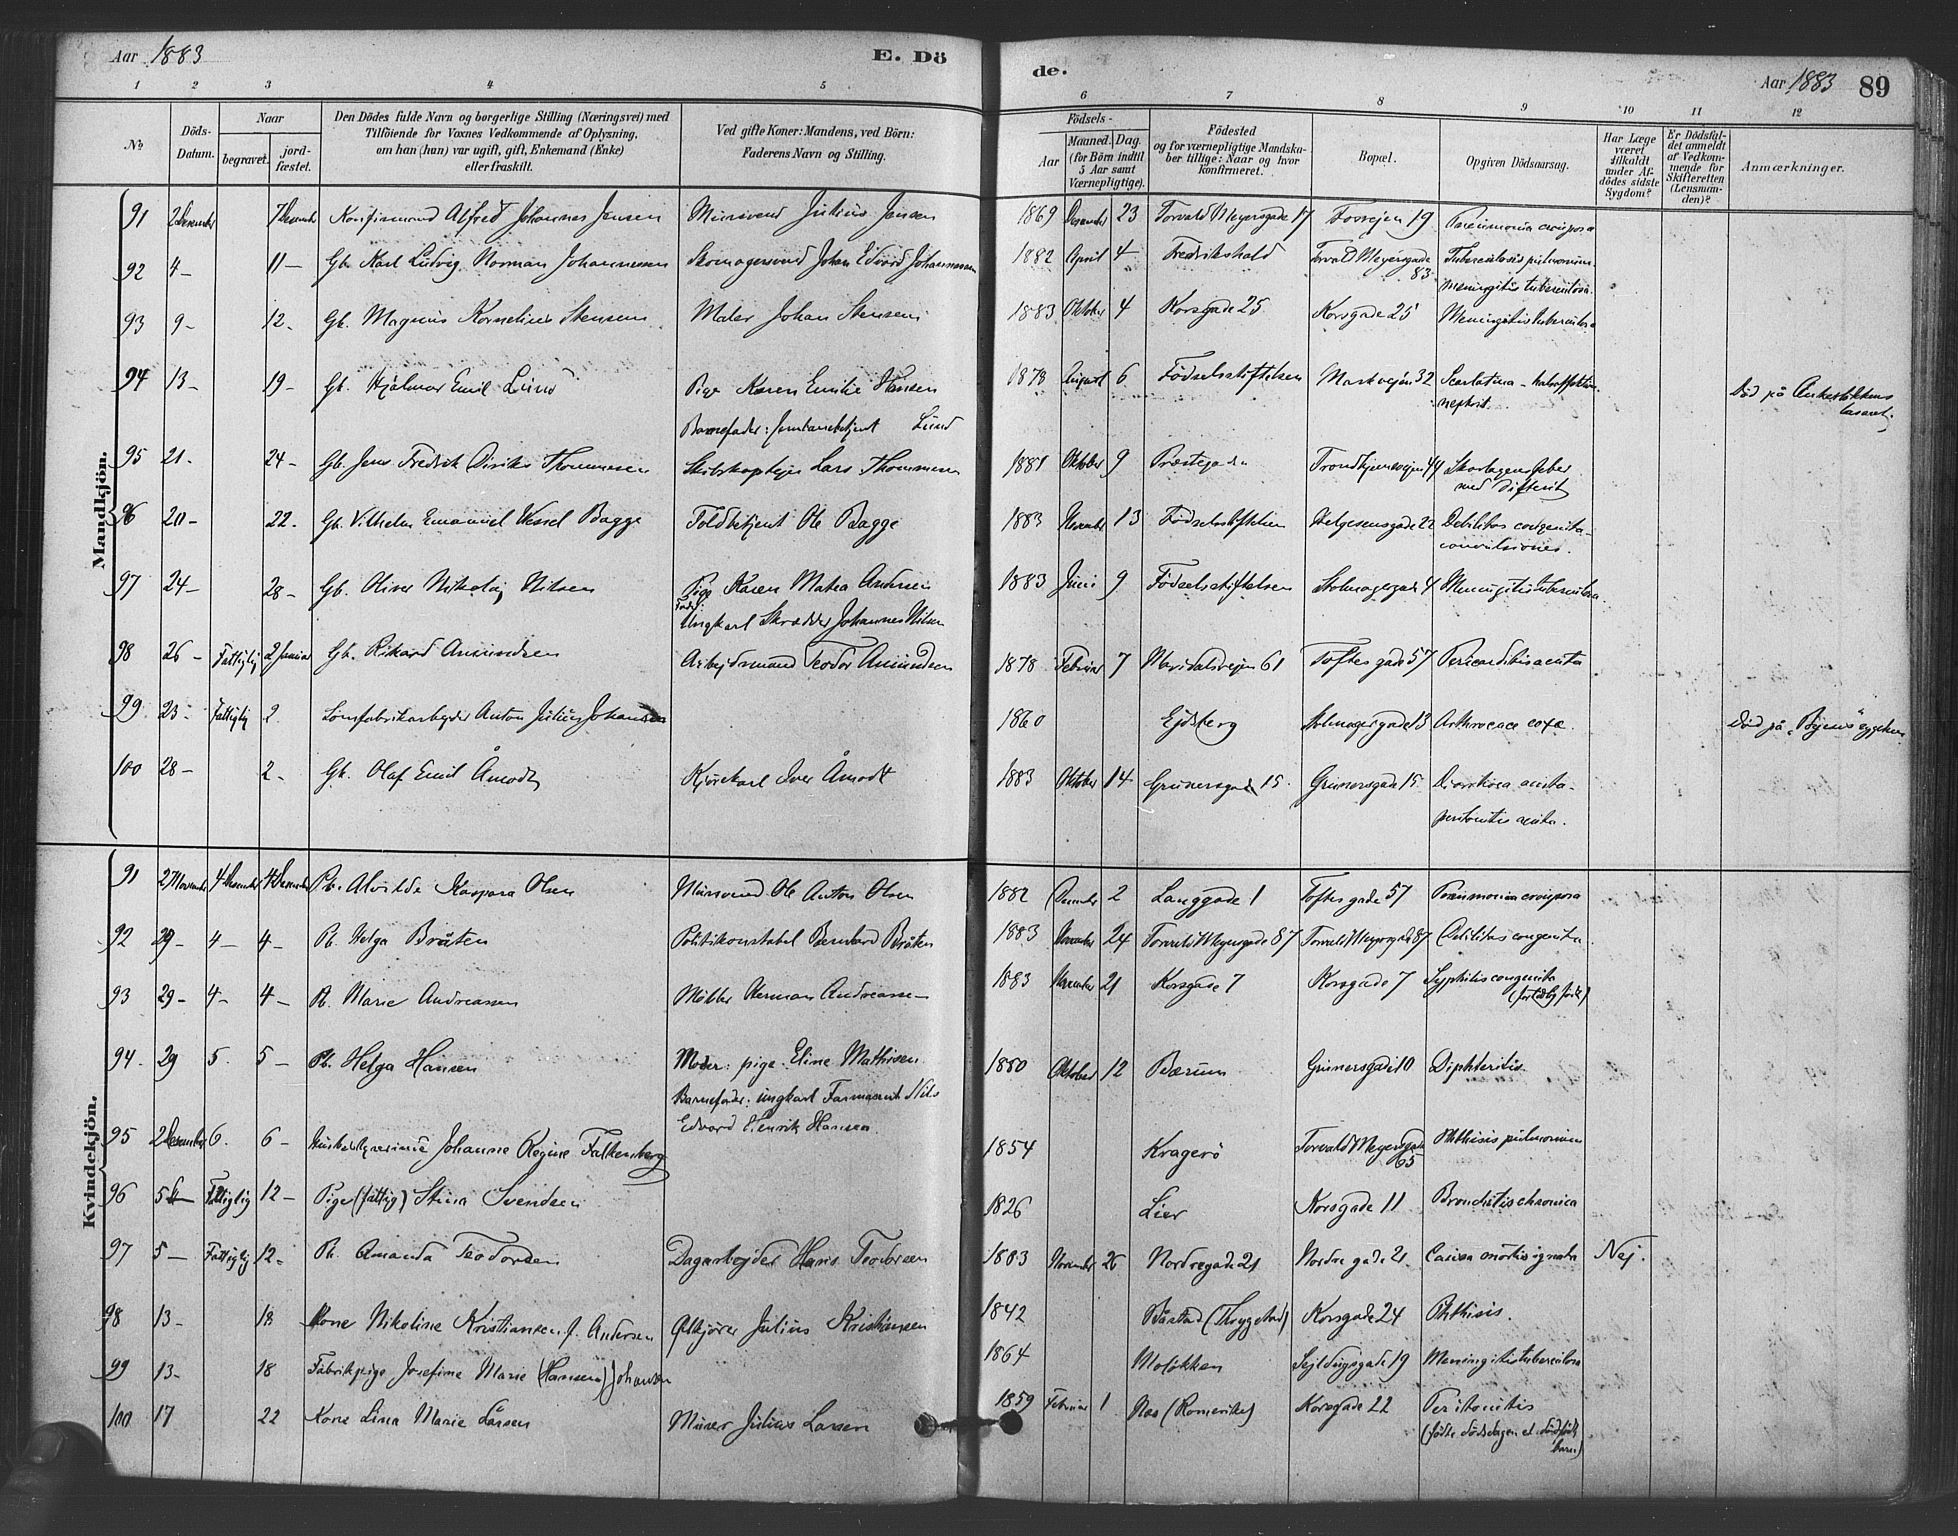 Aar 1883 E. Dö
de. Aar 1883 89
1 2 3 4 5 6 7 8 9 10 11 12
No
Döds-
Datum.
Naar
begravet.
jord-
fæstet.
Den Dödes fulde Navn og borgerlige Stilling (Næringsvei) med
Tilföiende for Voxnes Vedkommende af Oplysning,
om han (hun) var ugift, gift, Enkemand (Enke)
eller fraskilt.
Ved gifte Koner: Mandens, ved Börn:
Faderens Navn og Stilling.
Födsels-
Aar
Maaned. Dag.
(for Börn indtil
5 Aar samt
Værnepligtige).
Födested
og for værnepligtige Mandska-
ber tillige: Naar og hvor
konfirmeret.
Bopæl.
Opgiven Dödsaarsag.
Har Læge
været
tilkaldt
under Af-
dödes sidste
Sygdom?
Er Dödsfal-
det anmeldt
af Vedkom-
mende for
Skifteretten
(Lensman-
den)?
Anmærkninger.
Mandkjön.
91 2 Desember 7 Desember Konfirmand Alfred Johannes Jensen Mursvend Julius Jensen 1869 Desember 23 Torvald Meyersgade 17 Fossvejen 19 Pneumonia crouposa
92 4 – 11 – Gb. Karl Ludvig Norman Johannessen Skomagersvend Johan Edvard Johannessen 1882 April 4 Fredrikshald Torvald Meyersgade 83 Tuberculosis pulmonum. meningitis tuberculosa.
93 9 – 12 – Gb. Magnus Kornelius Stensen Maler Johan Stensen 1883 Oktober 4 Korsgade 25 Korsgade 25 Meningitis tuberculosa
94 13 – 19 – Gb. Hjalmar Emil Lund Pige Karen Emilie Hansen 1878 August 6 Födselsstiftelsen Markvejen 32 Scarlatina – halsaffektion
nephrit. Död på Ankerløkkens lasaret
Barnefader: Jernbanebetjent Lund
95 21 – 24 – Gb. Jens Fredrik Diriks Thommesen Skibskaptejn Lars Thommesen 1881 Oktober 9 Præstegaden Trondhjemsvejen 44 Skarlagensfeber
med difterit
96 20 – 22 – Gb. Vilhelm Emanuel Wessel Bagge Toldbetjent Ole Bagge 1883 November 13 Födselsstiftelsen Helgesensgade 22 Debilitas congenita –
convulsiones.
97 24 – 28 – Gb. Oliver Nikolaj Nilsen Pige Karen Matea Andersen 1883 Juni 9 Födselsstiftelsen Stolmagergade 4 Meningitis tuberculosa.
Fader:
Ungkarl Skrædder Johannes Nilsen
98 26 – Fattiglig 2 Januar Gb. Rikard Amundsen Arbejdsmand Teodor Amundsen 1878 Februar 7 Maridalsvejen 61 Toftes gade 57 Pericarditis acuta
99 23 – Fattiglig 2 Anton Julius Johansen 1860 Ejdsberg Stolmagergade 13 Arthrocace coxæ. Död på "Byens Sygehus"
100 28 – 2 – Gb. Olaf Emil Åmodt Kjørekarl Iver Åmodt 1883 Oktober 14 Grünersgade 15. Grünersgade 15 Diarrhoea acuta –
peritonitis acuta.
Kvindekjön.
91 27 November 4 Desember 4 Desember Pb. Alvilde Kaspara Olsen Mursvend Ole Anton Olsen 1882 Desember 2 Langgade 1 Toftes gade 57 Pneumonia crouposa
92 29 – 4 – 4 – Pb. Helga Bråten Politikonstabel Bernhard Bråten 1883 November 24 Torvald Meyersgade 87 Torvald Meyersgade 87 Debilitas congenita
93 29 – 4 – 4 – Pb. Marie Andreassen Møller Herman Andreassen 1883 November 21 Korsgade 7 Korsgade 7 Syphilis congenita
(fortidlig født)
94. 29 5. 5 – Pb. Helga Hansen Moder: pige Eline Mathisen 1880 Oktober 12 Bærum Grünersgade 10 Diphteritis.
Barnefader: ungkarl Farmaceut Nils
Edvard Henrik Hansen.
95 2 Desember 6. 6 – Johanne Regine Falkenberg 1854 Kragerö Torvald Meyersgade 65 Phthisis pulmonum
96 5 – Fattiglig 12 – Pige (fattig) Stina Svendsen 1826 Lier Korsgade 11 Bronchitis chronica
97 5 – Fattiglig 12 – Pb. Amanda Teodorsen Dagarbejder Hans Teodorsen 1883 November 26 Nordregade 21 Nordre gade 21. Causa mortis ignota Nej.
98 13 – 18 Kone Nikoline Kristiansen f. Andersen Ølkjører Julius Kristiansen 1842 Båstad (Trygstad) Korsgade 24 Phthisis.
99 13 – 18 Fabrikpige Josefine Marie (Hansen) Johansen 1864 Moløkken Sejldugsgade 19 Meningitis tuberculosa
100 17 22 Kone Lina Marie Larsen Murer Julius Larsen 1859 Februar 1 Nes (Romerike) Korsgade 22 Peritonitis
(fødte dödsdagen et dödfödt
barn)